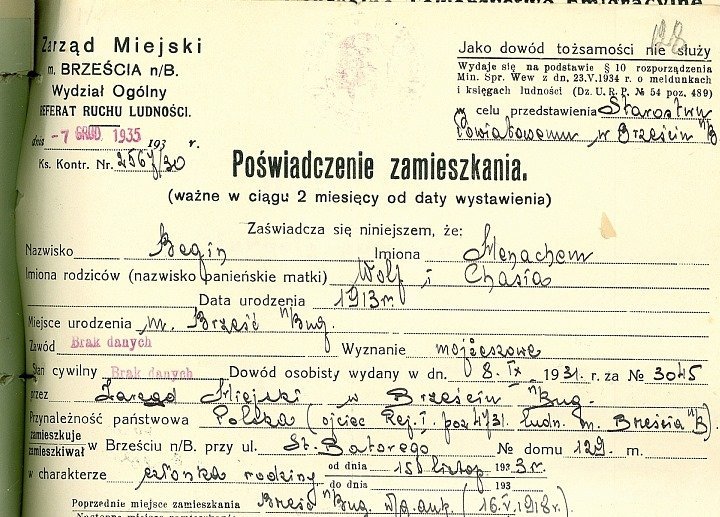 128
Zarząd Miejski
m. BRZEŚCIA n/B.
Wydział Ogólny
REFERAT RUCHU LUDNOŚCI.
dnia -7 GRUD 1935 193 r.
Ks. Kontr. Nr. 2567/30
Jako dowód tożsamości nie służy
Wydaje się na podstawie § 10 rozporządzenia
Min. Spr. Wew z dn. 23.V.1934 r. o meldunkach
i księgach ludności (Dz. U. R. P. № 54 poz. 489)
w celu przedstawienia Starostwu
Powiatowemu w Brześciu n/B
Poświadczenie zamieszkania.
(ważne w ciągu 2 miesięcy od daty wystawienia)
Zaświadcza się niniejszem, że:
Nazwisko Begin Imiona Menachem
Imiona rodziców (nazwisko panieńskie matki) Wolf i Chasia
Data urodzenia 1913 r.
Miejsce urodzenia m. Brześć n/Bug.
Zawód Brak danych Wyznanie mojżeszowe
Stan cywilny Brak danych Dowód osobisty wydany w dn. 8. IX 1931. r. za № 3045
przez Zarząd Miejski w Brześciu n/Bug.
Przynależność państwowa Polska (ojciec Rej. I. poz 4731. ludn. m. Brześcia n/B).
zamieszkuje
zamieszkiwał w Brześciu n/B. przy ul. St. Batorego № domu 129. m.
w charakterze członka rodziny od dnia 15 listop. 1933 r.
do dnia 193
Poprzednie miejsce zamieszkania Brześć n/Bug. (16.V.1918 r.)